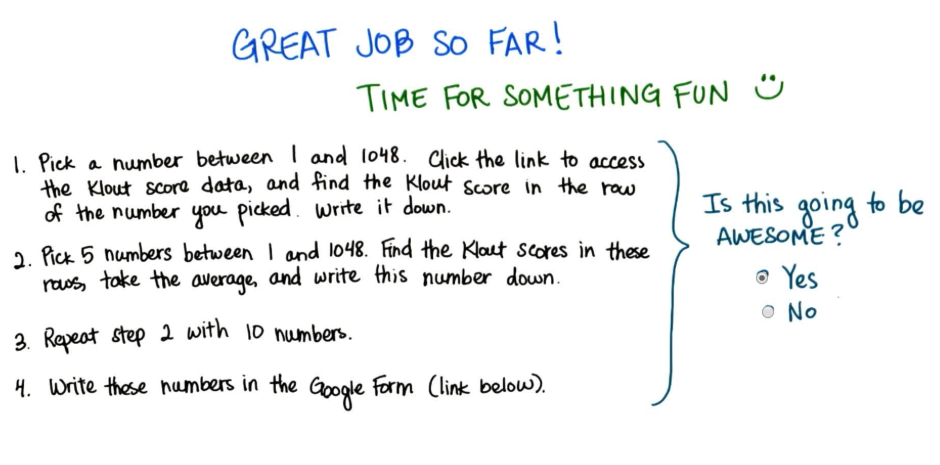 GREAT JOB SO FAR!
TIME FOR SOMETHING FUN
1. Pick a number between 1 and 1048. Click the link to access
the Klout score data, and find the Klout score in the row
of the number you picked. Write it down.
2. Pick 5 numbers between 1 and 1048. Find the Klout scores in these
rows, take the average, and write this number down.
3. Repeat step 2 with 10 numbers.
4. Write these numbers in the Google Form (link below).
Is this going to be
AWESOME?
Yes
No